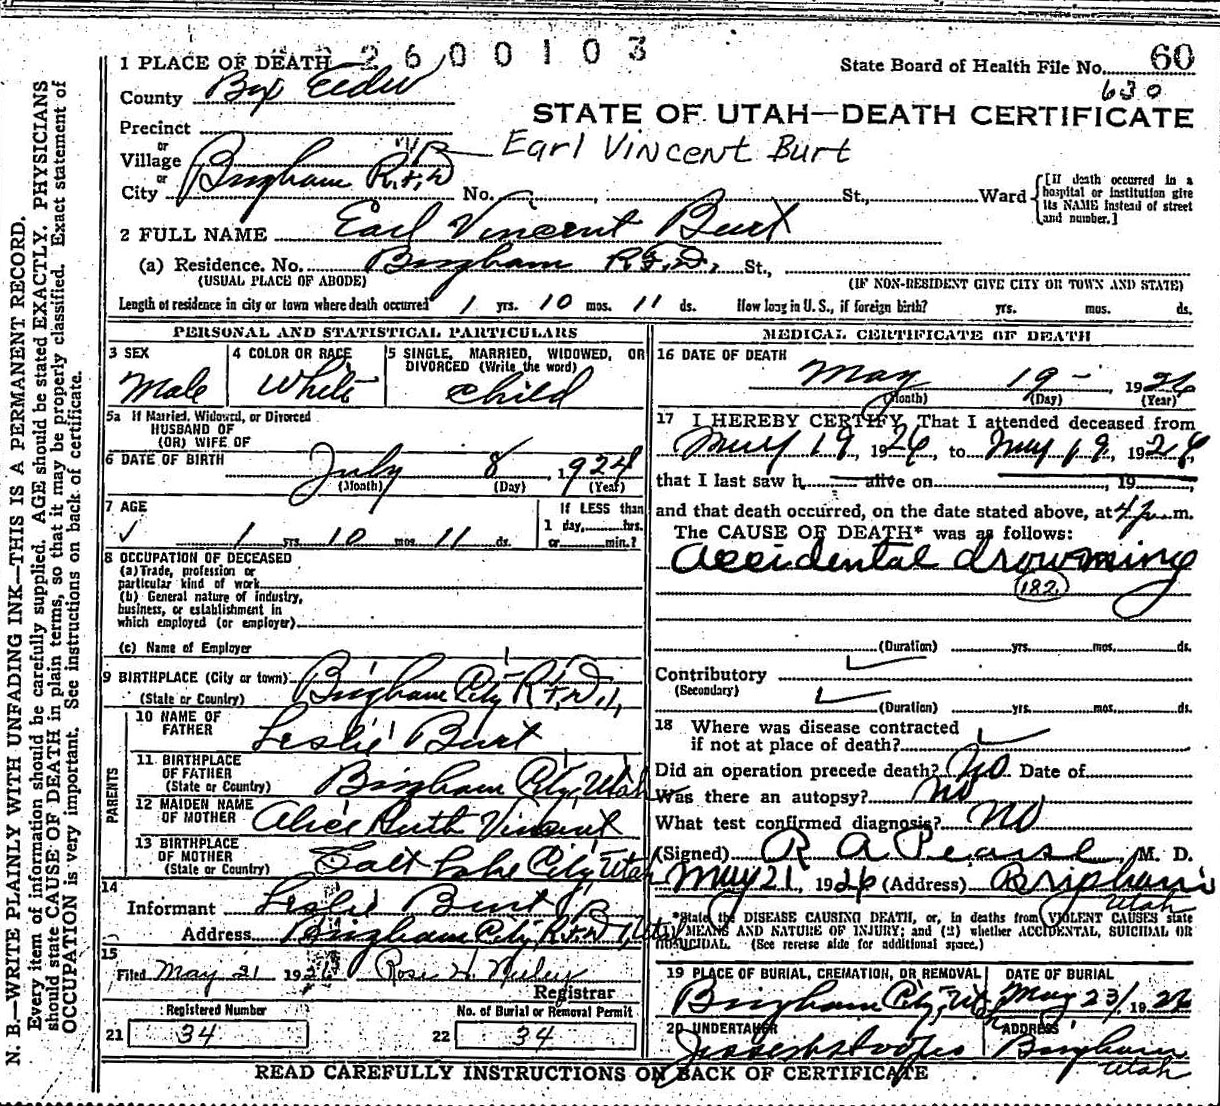 2600103
1 PLACE OF DEATH
State Board of Health File No. 60
630
County Box Elder
STATE OF UTAH—DEATH CERTIFICATE
Precinct
or
Village
Earl Vincent Burt
or
City Brigham R.F.D No. St., Ward
[If death occurred in a hospital or institution give its NAME instead of street and number.]
2 FULL NAME Earl Vincent Burt
(a) Residence. No. Brigham R.F.D. St.,
(USUAL PLACE OF ABODE) (IF NON-RESIDENT GIVE CITY OR TOWN AND STATE)
Length of residence in city or town where death occurred 1 yrs. 10 mos. 11 ds. How long in U. S., if foreign birth? yrs. mos. ds.
PERSONAL AND STATISTICAL PARTICULARS
3 SEX
Male
4 COLOR OR RACE
White
5 SINGLE, MARRIED, WIDOWED, OR DIVORCED (Write the word)
Child
5a If Married, Widowed, or Divorced
HUSBAND OF
(OR) WIFE OF
6 DATE OF BIRTH
July 8, 1924
(Month) (Day) (Year)
7 AGE
1 yrs. 10 mos. 11 ds.
If LESS than
1 day, hrs.
or min.?
8 OCCUPATION OF DECEASED
(a) Trade, profession or
particular kind of work
(b) General nature of industry,
business, or establishment in
which employed (or employer)
(c) Name of Employer
9 BIRTHPLACE (City or town) Brigham City R.F.D 1,
(State or Country)
PARENTS
10 NAME OF FATHER Leslie Burt
11 BIRTHPLACE OF FATHER Brigham City, Utah
(State or Country)
12 MAIDEN NAME OF MOTHER Alice Ruth Vincent
13 BIRTHPLACE OF MOTHER Salt Lake City, Utah
(State or Country)
14
Informant Leslie Burt
Address Brigham City R.F.D 1, Utah
15
Filed May 21 1926
Registrar
Registered Number
21 34
No. of Burial or Removal Permit
22 34
MEDICAL CERTIFICATE OF DEATH
16 DATE OF DEATH
May 19 - , 1926
(Month) (Day) (Year)
17 I HEREBY CERTIFY, That I attended deceased from
May 19, 1926, to May 19, 1926,
that I last saw h alive on , 19 ,
and that death occurred, on the date stated above, at 4 p. m.
The CAUSE OF DEATH* was as follows:
Accidental drowning
182
(Duration) yrs. mos. ds.
Contributory
(Secondary)
(Duration) yrs. mos. ds.
18 Where was disease contracted
if not at place of death?
Did an operation precede death? No Date of
Was there an autopsy? No
What test confirmed diagnosis? no
(Signed) R A Pearse, M. D.
May 21, 1926 (Address) Brigham
Utah
*State the DISEASE CAUSING DEATH, or, in deaths from VIOLENT CAUSES state
MEANS AND NATURE OF INJURY; and (2) whether ACCIDENTAL, SUICIDAL OR
HOMICIDAL. (See reverse side for additional space.)
19 PLACE OF BURIAL, CREMATION, OR REMOVAL
Brigham City, Utah
DATE OF BURIAL
May 23, 1926
20 UNDERTAKER
ADDRESS
Brigham
Utah
READ CAREFULLY INSTRUCTIONS ON BACK OF CERTIFICATE
N. B.—WRITE PLAINLY WITH UNFADING INK—THIS IS A PERMANENT RECORD.
Every item of information should be carefully supplied. AGE should be stated EXACTLY. PHYSICIANS
should state CAUSE OF DEATH in plain terms, so that it may be properly classified. Exact statement of
OCCUPATION is very important. See instructions on back of certificate.